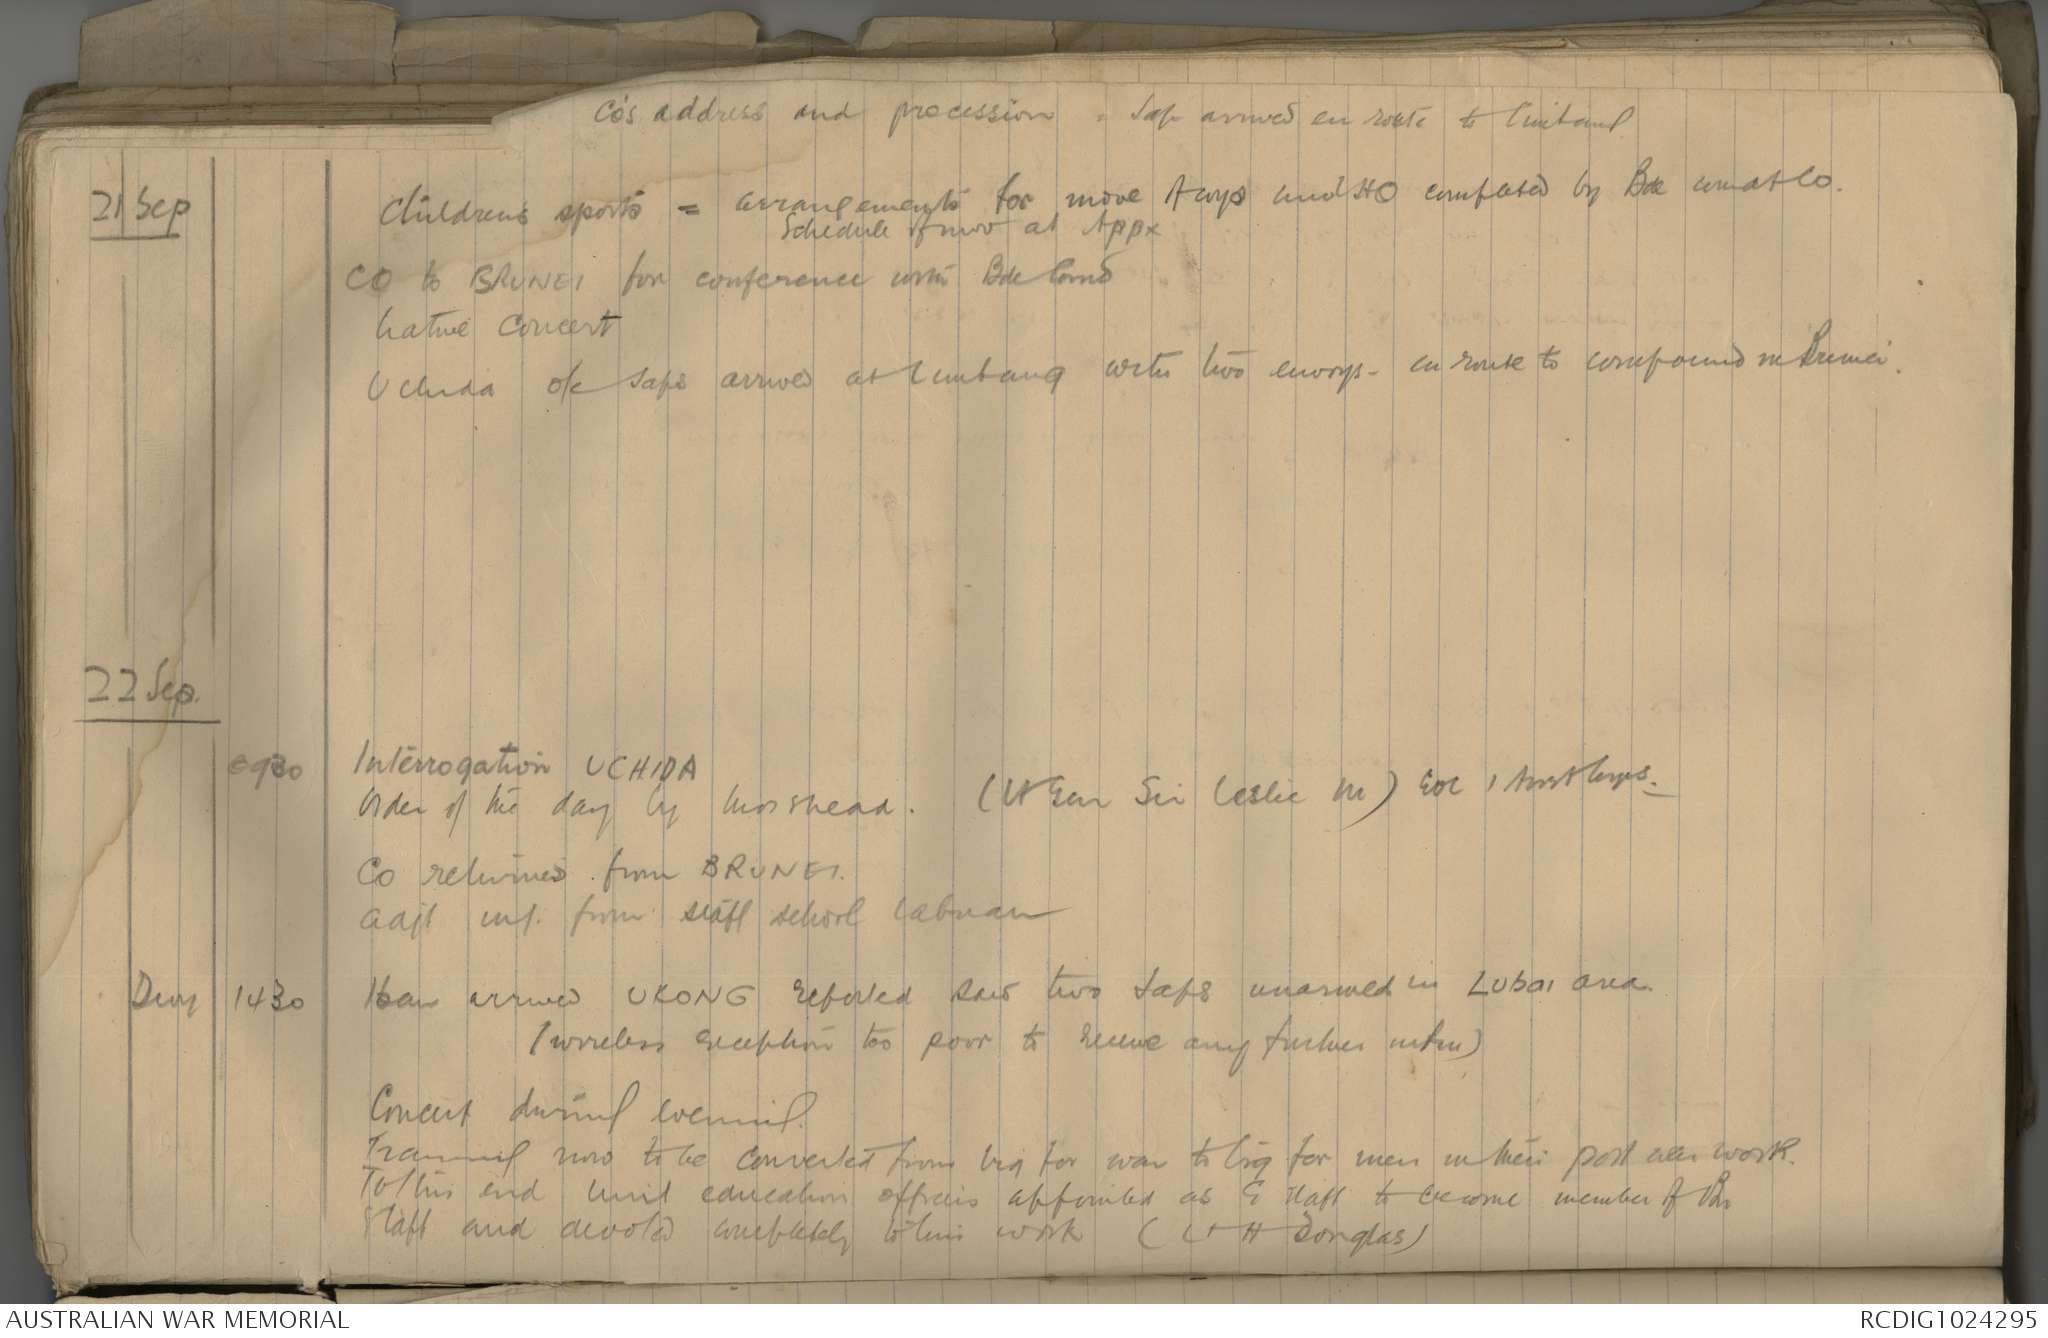 CO's address and procession = Jap arrived en route to Limbang
21 Sep
Childrens sports = arrangements for move A coys and HQ completed by Bde
Schedule of mov at Appx
CO to BRUNEI for conference with Bde Comd
Native Concert
Uchida o/c Japs arrived at Limbang with two envoys - en route to compound in Brunei.
22 Sep.
0930 Interrogation UCHIDA
Order of the day by Morshead. (Lt Gen Sir Leslie M) GOC 1 Aust Corps.
CO returned from BRUNEI.
Adjt from staff school Labuan
Day 1430 Iban arrived UKONG reported saw two Japs unarmed in LUBAI area.
(wireless reception too poor to receive any further infm)
Concert during evening.
Training now to be converted from trg for war to trg for men in their post war work.
To this end unit education officers appointed as E staff to become member of Bn
Staff and devoted completely to this work (Lt H Douglas)
AUSTRALIAN WAR MEMORIAL
RCDIG1024295